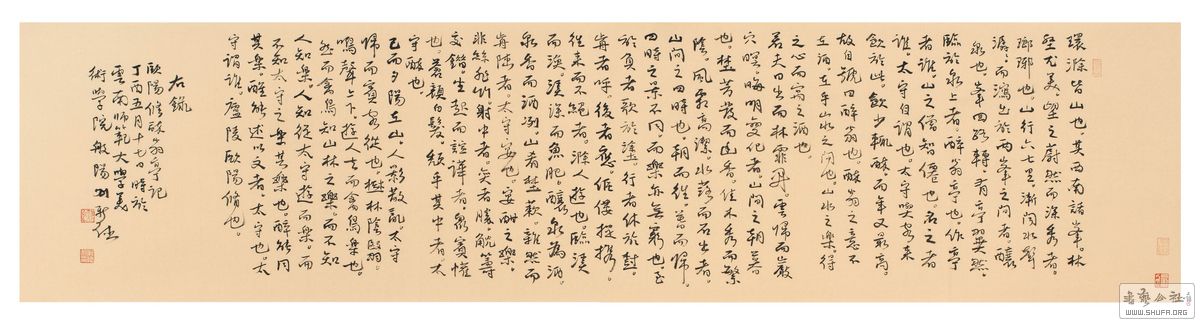 環滁皆山也。其西南諸峯。林
壑尤美。望之蔚然而深秀者。
瑯琊也。山行六七里。漸聞水聲
潺潺。而瀉出於兩峯之間者。釀
泉也。峯回路轉。有亭翼然。
臨於泉上者。醉翁亭也。作亭
者誰。山之僧智僊也。名之者
誰。太守自謂也。太守與客来
飲於此。飲少輒醉。而年又最高。
故自號曰醉翁也。醉翁之意不
在酒。在乎山水之間也。山水之樂。得
之心而寓之酒也。
若夫日出而林霏開。雲歸而巖
穴暝。晦明變化者。山間之朝暮
也。野芳發而幽香。佳木秀而繁
陰。風霜高潔。水落而石出者。
山間之四時也。朝而往。暮而歸。
四時之景不同。而樂亦無窮也。至
於負者歌於塗。行者休於樹。
前者呼。後者應。傴僂提攜。
往来而不絕者。滁人遊也。臨溪
而漁。溪深而魚肥。釀泉為酒。
泉香而酒洌。山肴野蔌。雜然而
前陳者。太守宴也。宴酣之樂。
非絲非竹。射中者。奕者勝。觥籌
交錯。坐起而諠譁者。衆賓懽
也。蒼顏白髮。頹乎其中者。太
守醉也。
已而夕陽在山。人影散亂。太守
歸而賓客從也。樹林陰翳。
鳴聲上下。遊人去而禽鳥樂也。
然而禽鳥知山林之樂。而不知
人知樂。人知從太守遊而樂。而
不知太守之樂其樂也。醉能同
其樂。醒能述以文者。太守也。太
守謂誰。廬陵歐陽脩也。
右錄
歐陽脩醉翁亭記
丁酉五月十七日時於
雲南師範大學美
術學院般陽
書藝公社
WWW.SHUFA.ORG